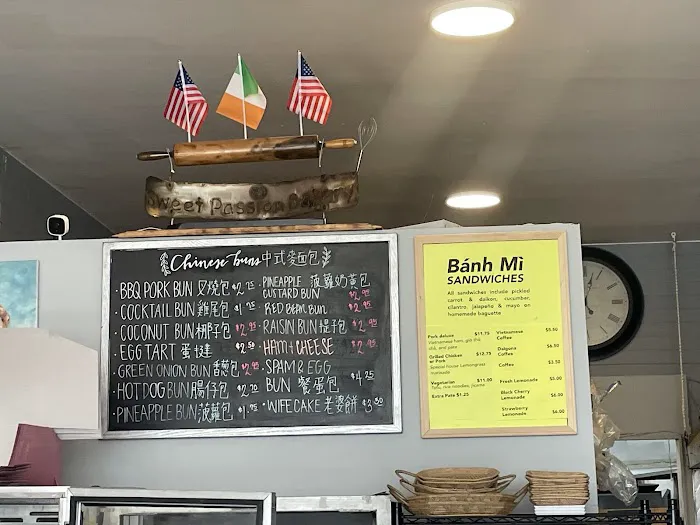 Sweet Passion Bakery
Chinese buns 中式麵包
· BBQ PORK BUN 叉燒包 $2.75
· COCKTAIL BUN 雞尾包 $1.95
· COCONUT BUN 椰子包 $2.95
· EGG TART 蛋撻 $2.50
· GREEN ONION BUN 香蔥包 $2.95
· HOTDOG BUN 腸仔包 $2.70
· PINEAPPLE BUN 菠蘿包 $1.95
· PINEAPPLE 菠蘿奶黃包
CUSTARD BUN $2.95
· RED BEAN BUN $2.95
· RAISIN BUN 提子包 $2.95
· HAM & CHEESE $2.95
· SPAM & EGG
BUN 餐蛋包 $4.25
· WIFE CAKE 老婆餅 $3.50
Bánh Mì
SANDWICHES
All sandwiches include pickled
carrot & daikon, cucumber,
cilantro, jalapeño & mayo on
homemade baguette
Pork deluxe $11.75
Vietnamese ham, pâté
Grilled Chicken $12.75
or Pork
Special house Lemongrass
marinade
Vegetarian $11.00
Tofu, rice noodles, jicama
Extra Pate $1.25
Vietnamese $5.50
Coffee
Dalgona $6.50
Coffee
Coffee $3.50
Fresh Lemonade $5.00
Black Cherry $6.00
Lemonade
Strawberry $6.00
Lemonade